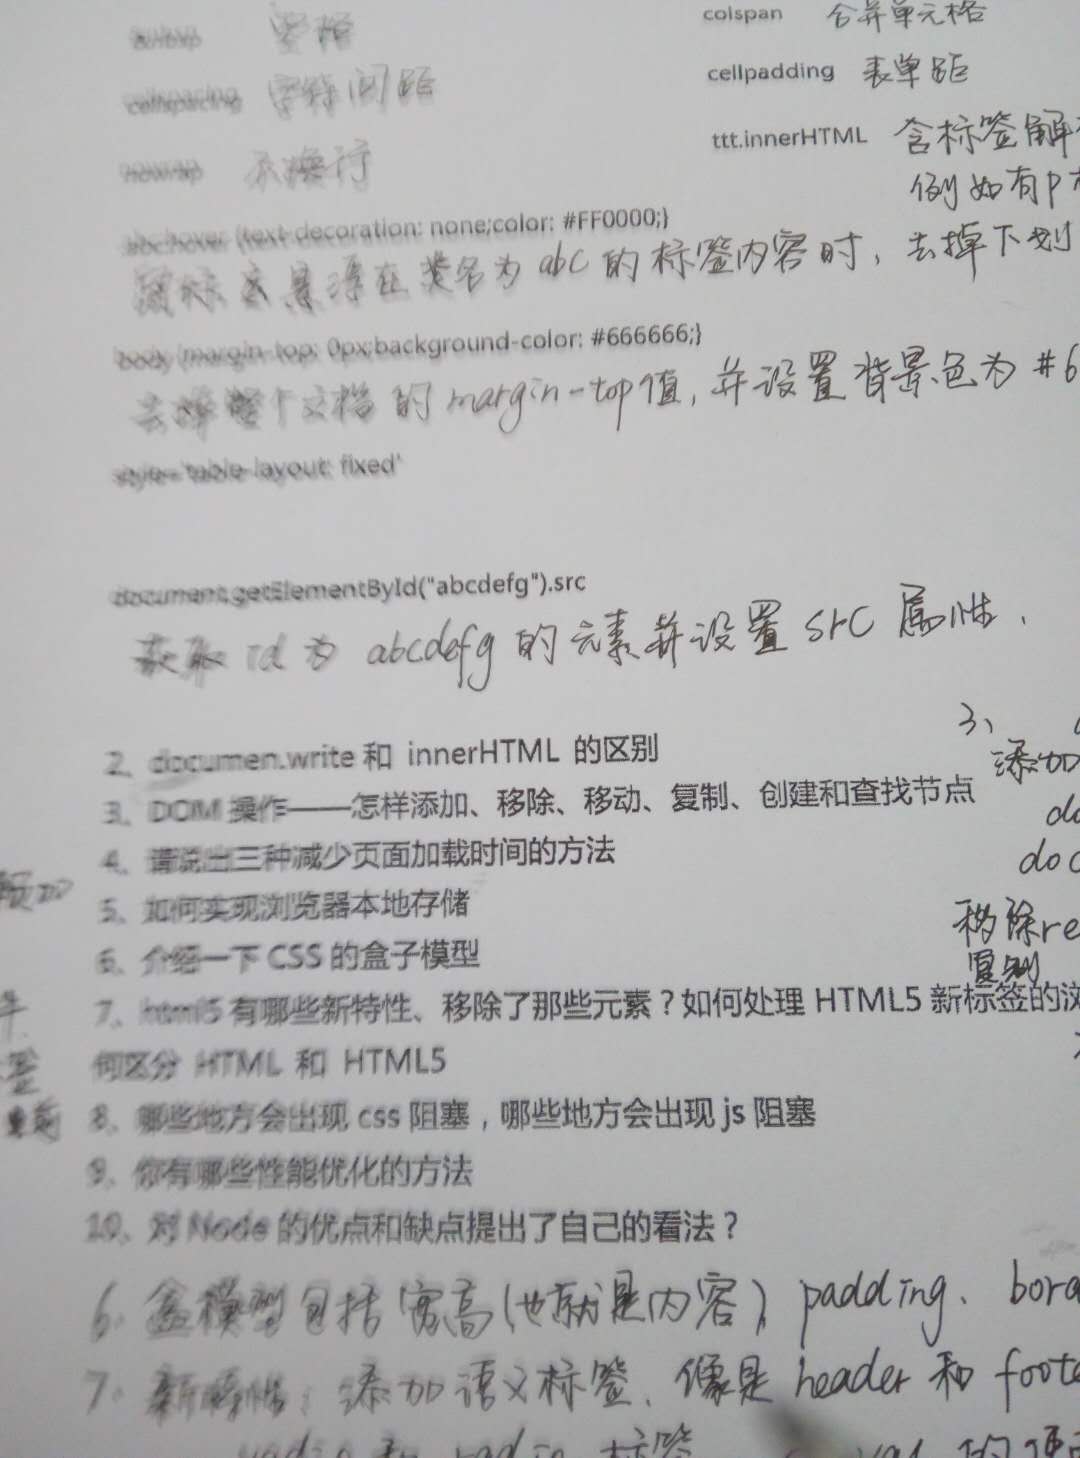 &nbsp 空格
colspan 合并单元格
cellspacing 间距
cellpadding 表单距
nowrap 不换行
ttt.innerHTML 含标签解
例如有p
abc:hover {text-decoration: none;color: #FF0000;}
鼠标悬浮在类名为abc的标签内容时，去掉下划
body {margin-top: 0px;background-color: #666666;}
去掉整个文档的margin-top值，并设置背景色为#6
style='table-layout: fixed'
document.getElementById("abcdefg").src
获取id为abcdefg的元素并设置src属性.
3、
2、documen.write 和 innerHTML 的区别
添加
3、DOM 操作——怎样添加、移除、移动、复制、创建和查找节点
do
4、请说出三种减少页面加载时间的方法
doc
5、如何实现浏览器本地存储
移除re
6、介绍一下 CSS 的盒子模型
复制
7、html5 有哪些新特性、移除了那些元素？如何处理 HTML5 新标签的浏
何区分 HTML 和 HTML5
8、哪些地方会出现 css 阻塞，哪些地方会出现 js 阻塞
9、你有哪些性能优化的方法
10、对 Node 的优点和缺点提出了自己的看法？
6. 盒模型包括宽高(也就是内容)、padding、bord
7. 新特性：添加语义标签、像是header和foote